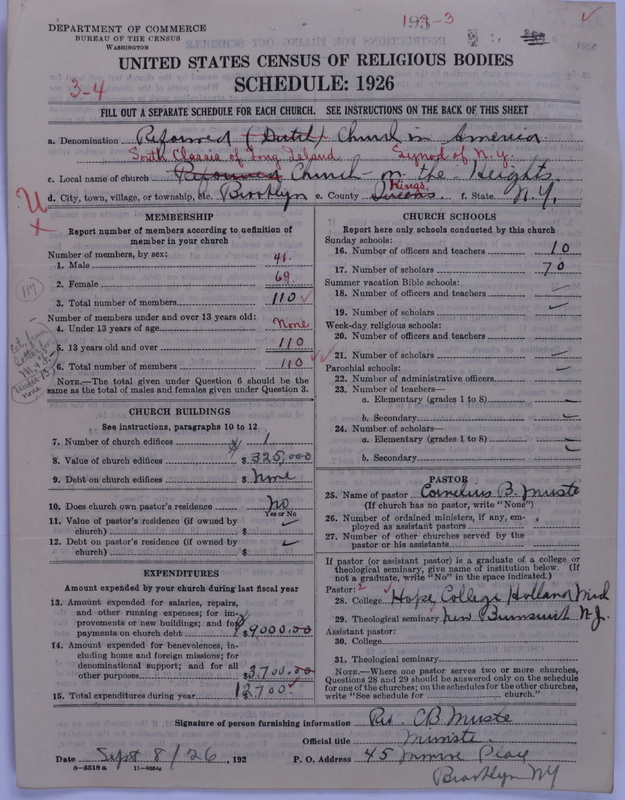 193-3
DEPARTMENT OF COMMERCE
BUREAU OF THE CENSUS
WASHINGTON
UNITED STATES CENSUS OF RELIGIOUS BODIES
SCHEDULE: 1926
3-4
FILL OUT A SEPARATE SCHEDULE FOR EACH CHURCH. SEE INSTRUCTIONS ON THE BACK OF THIS SHEET
a. Denomination Reformed (Dutch) Church in America
South Classis of Long Island Synod of N.Y.
c. Local name of church Reformed Church-on-the-Heights
d. City, town, village, or township, etc. Brooklyn e. County Queens Kings f. State N.Y.
MEMBERSHIP
Report number of members according to definition of member in your church
Number of members, by sex:
1. Male 41
2. Female 69
3. Total number of members 110
Number of members under and over 13 years old:
4. Under 13 years of age None
5. 13 years old and over 110
6. Total number of members 110
NOTE.—The total given under Question 6 should be the same as the total of males and females given under Question 3.
117
CHURCH BUILDINGS
See instructions, paragraphs 10 to 12
7. Number of church edifices 1
8. Value of church edifices $ 325,000
9. Debt on church edifices $ None
10. Does church own pastor's residence No
Yes or No
11. Value of pastor's residence (if owned by church) $
12. Debt on pastor's residence (if owned by church) $
EXPENDITURES
Amount expended by your church during last fiscal year
13. Amount expended for salaries, repairs, and other running expenses; for improvements or new buildings; and for payments on church debt $9000.00
14. Amount expended for benevolences, including home and foreign missions; for denominational support; and for all other purposes $3700.00
15. Total expenditures during year 12700
CHURCH SCHOOLS
Report here only schools conducted by this church
Sunday schools:
16. Number of officers and teachers 10
17. Number of scholars 70
Summer vacation Bible schools:
18. Number of officers and teachers
19. Number of scholars
Week-day religious schools:
20. Number of officers and teachers
21. Number of scholars
Parochial schools:
22. Number of administrative officers
23. Number of teachers—
a. Elementary (grades 1 to 8)
b. Secondary
24. Number of scholars—
a. Elementary (grades 1 to 8)
b. Secondary
PASTOR
25. Name of pastor Cornelius B. Muste
(If church has no pastor, write "None")
26. Number of ordained ministers, if any, employed as assistant pastors
27. Number of other churches served by the pastor or his assistants
If pastor (or assistant pastor) is a graduate of a college or theological seminary, give name of institution below. (If not a graduate, write "No" in the space indicated.)
Pastor:
28. College Hope College Holland Mich
29. Theological seminary New Brunswick N.J.
Assistant pastor:
30. College
31. Theological seminary
NOTE.—Where one pastor serves two or more churches, Questions 28 and 29 should be answered only on the schedule for one of the churches; on the schedules for the other churches, write "See schedule for church."
Signature of person furnishing information Rev. C.B. Muste
Official title Minister
Date Sept 8/26, 192 P. O. Address 45 Monroe Place
8-5518a 11-9204c Brooklyn NY